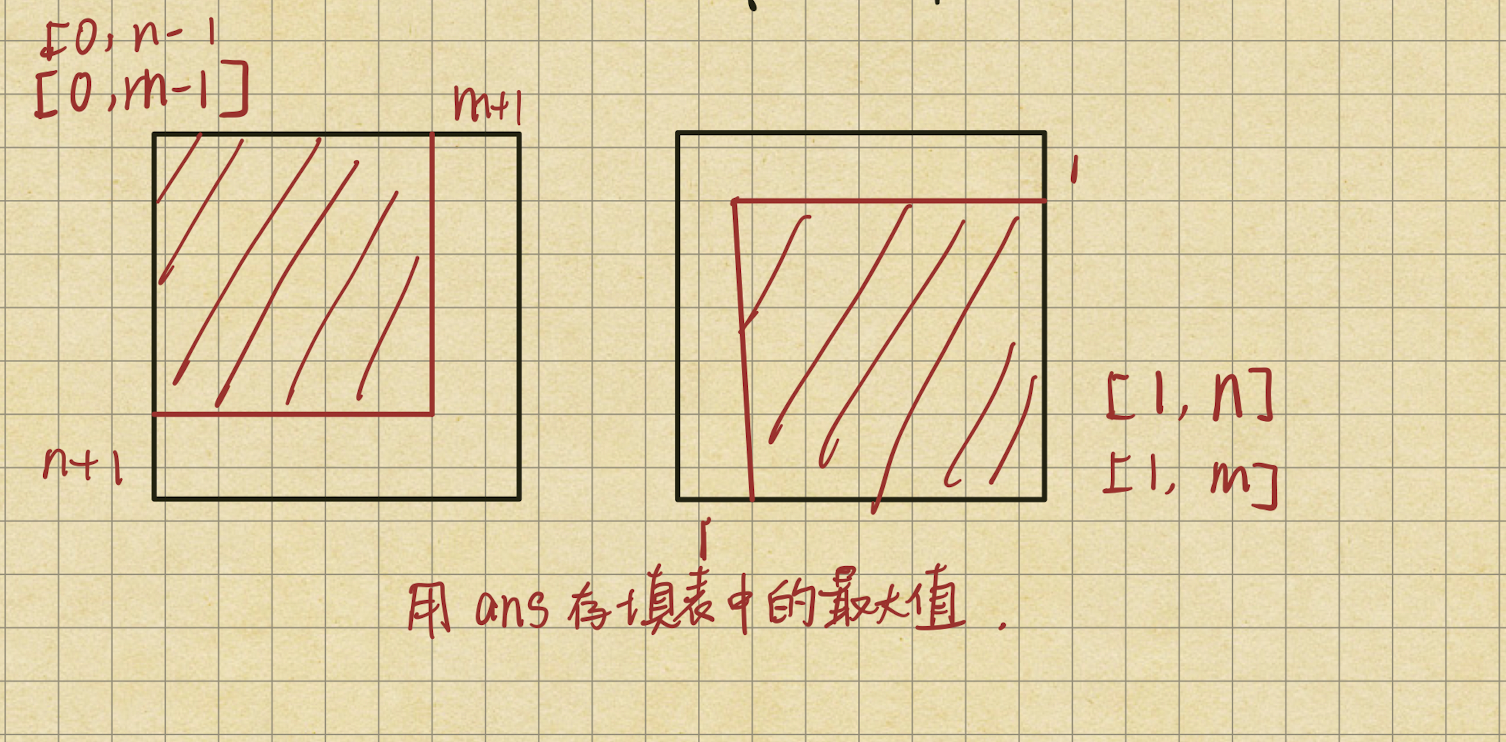 [0, n-1
[0, m-1]
m+1
1
[1, n]
n+1
[1, m]
1
用 ans 存填表中的最大值.